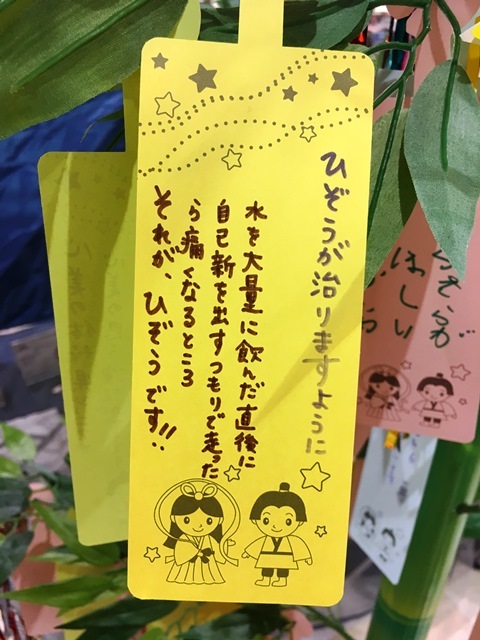 ひぞうが治りますように
水を大量に飲んだ直後に
自己新を出すつもりで走った
ら痛くなるところ
それが、ひぞうです!!
ほしい